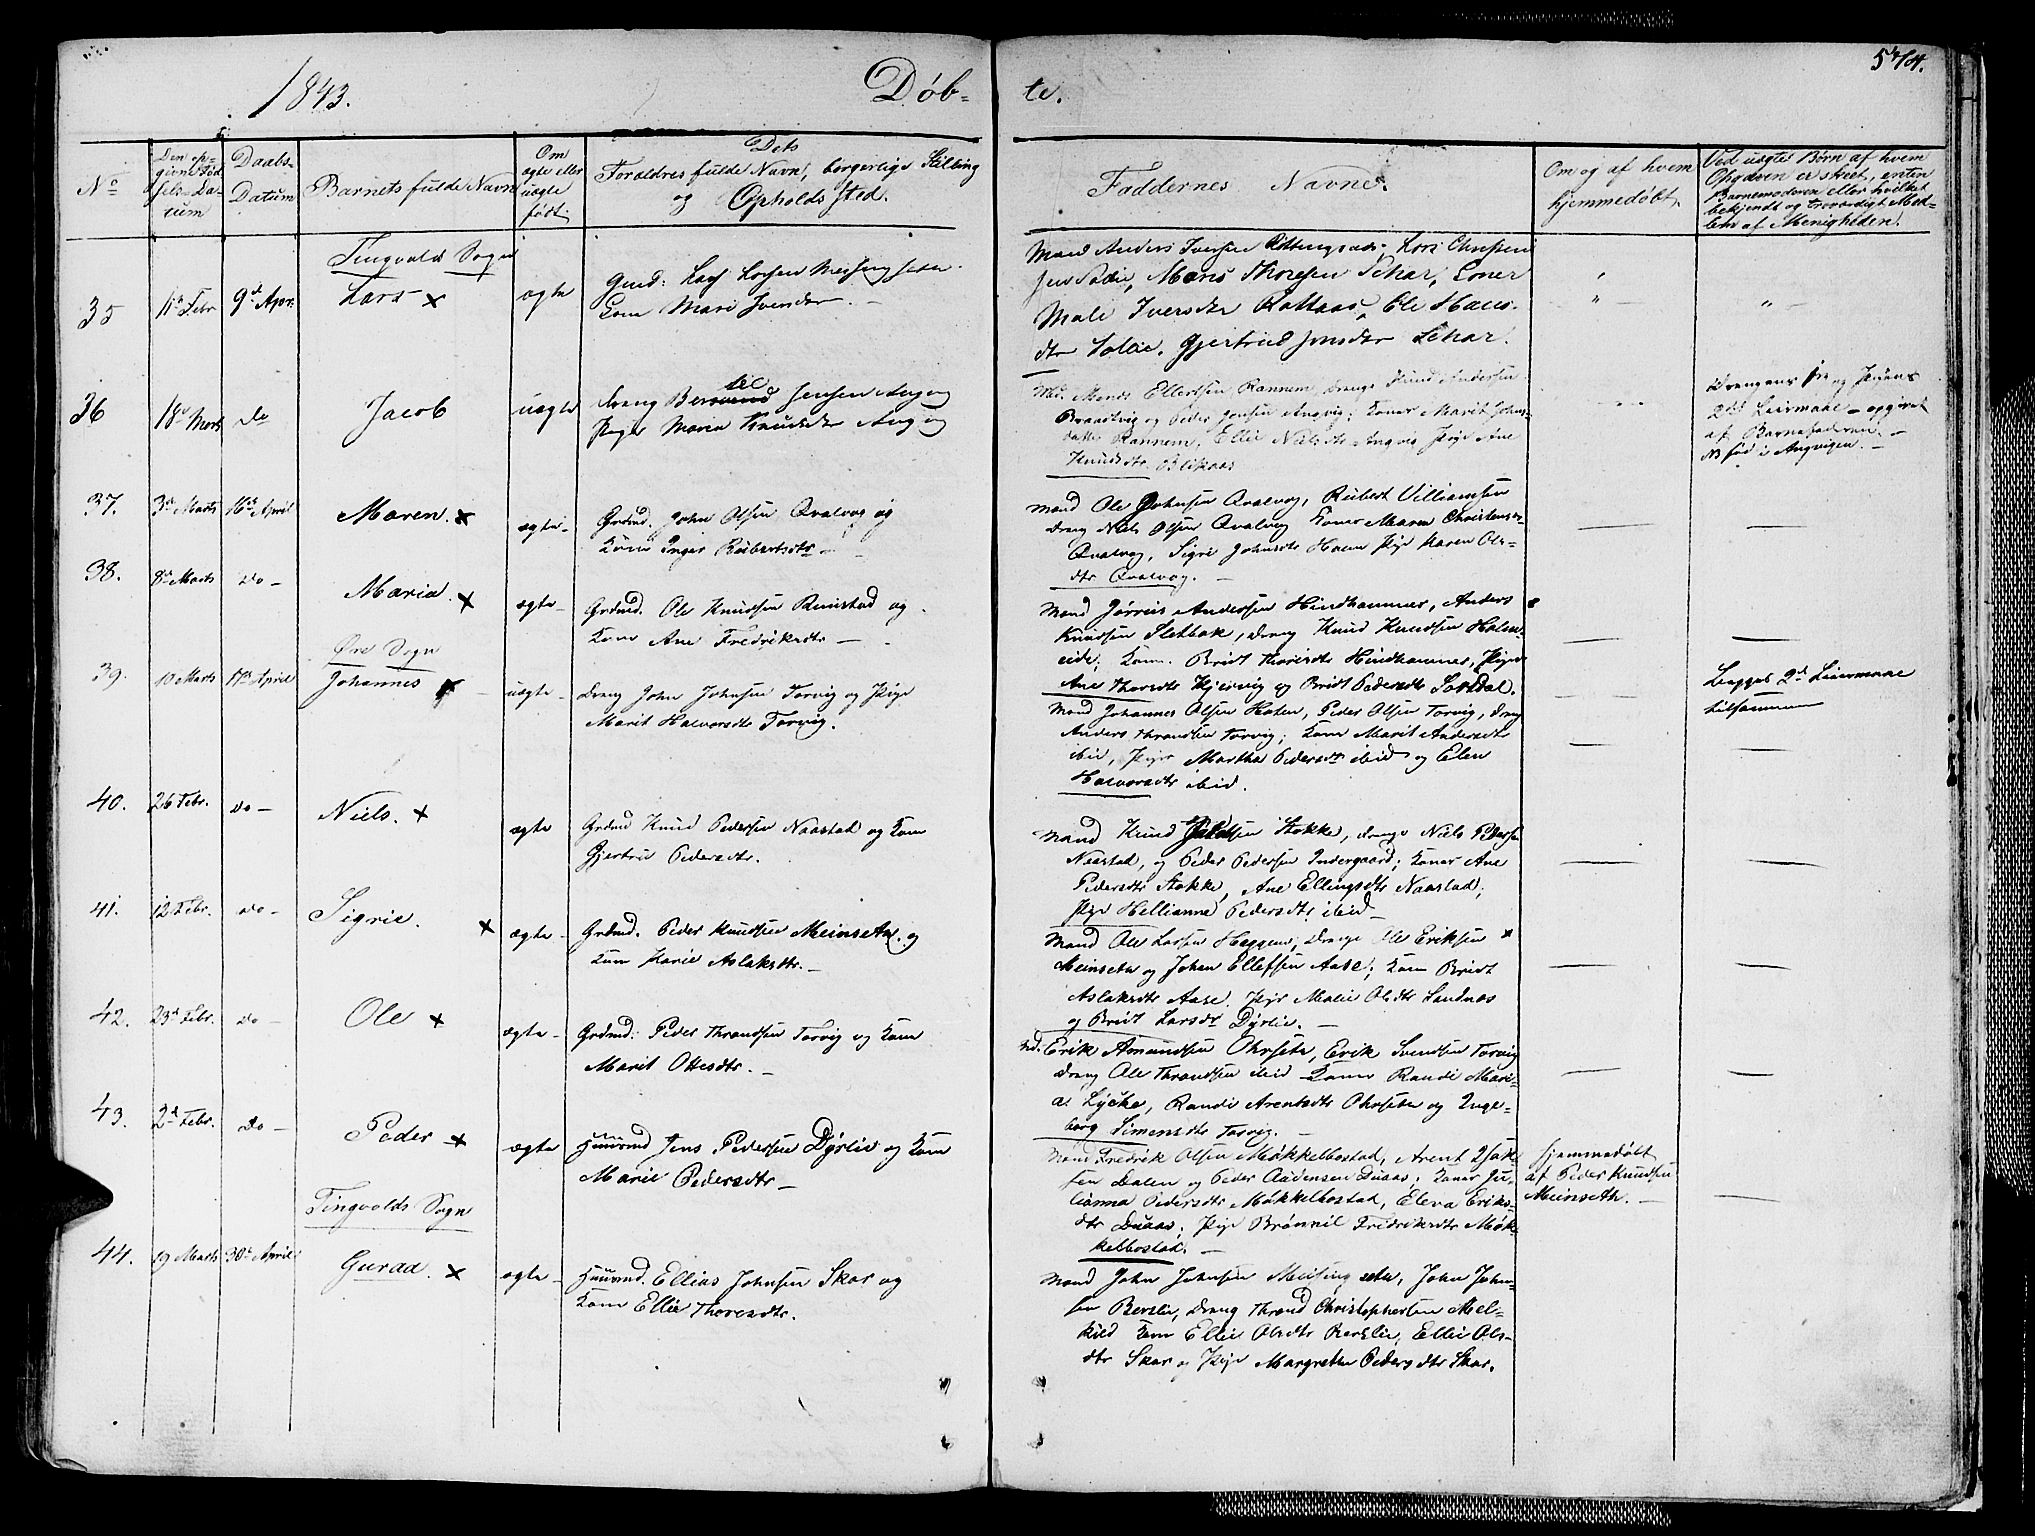 1843.
Døb-
te.
574.
No
Den op-
givne Fød-
sels-Da-
tum
Daabs-
Datum
Barnets fulde Navn
Om
ægte eller
uægte
født.
Dets
Forældres fulde Navn, borgerlige Stilling
og Opholds sted.
Faddernes Navne.
Om og af hvem
hjemmedøbt.
Ved uægte Børn af hvem
Opgaven er skeet, enten
Barnemoderen eller hvilket
bekjendt og troværdigt Med-
lem af Menigheden.
Tingvolds Sogn
35
11te Febr
9de Apr:
Lars x
ægte
Gmd: Lars Larsen Meisingseter
Kone Mari Iversdtr. —
Mand Anders Iversen
Mons Thoresen Skar, Koner
Mali Iversdtr Rottaas, Ole Hans-
dtr Sollie. Gjertrud Jonsdtr Skar.
36
18de Marts
do
Jacob
uægte
Dreng Bersvend Jensen Angvig
Pige Maren Knudsdtr Angvig
Md. Monds Ellertsen Rannem, Drenge Knud Andersen
Braastvig og Peder Jensen Angvig; Koner Marit Johns-
datter Rannem, Ellie Nielsdtr Angvig Pige Ane
Knudsdtr. Blikaas
Drengens 1ste og Pigens
2det Leiermaal - opgivet
af Barnefaderen. -
NB fød i Angvigen. -
37.
3de Marts
16de April
Maren. x
ægte-
Grdmd. John Olsen Qvalvog og
Kone Inger Rubertsdtr -
Mand Ole Johnsen Qvalvog, Rubert Villiamsen
Dreng Niels Olsen Qvalvog Koner Maren Christens-
Qvalvog, Sigri Johnsdtr Holm Pige Karen Ols-
dtr Qvalvog. -
38.
8de Marts
Do -
Maria. x
ægte-
Grdmd. Ole Knudsen Rimstad og
Kone Ane Fredriksdtr —
Mand Jørgen Andersen Hindhammer, Anders
Knudsen Sletbak, Dreng Knud Knudsen Holm-
eide; Kone. Bridt Thoresdtr Hindhammer, Piger
Ane Thoresdtr Kjeisvig og Bridt Pedersdtr Sordal.
Øre Sogn
39.
10 Marts
17de April
Johannes x
uægte-
Dreng John Johnsen Torvig og Pige
Marit Halvorsdtr Torvig.
Mand Johannes Olsen Holen, Peder Olsen Torvig, Dreng
Anders Throndsen Torvig; Kone Marit Andersdtr
ibid, Piger Martha Pedersdtr ibid og Elen
Halvorsdtr ibid.
Begges 2det Leiermaal
tilsammen
40.
26 Febr.
Do -
Niels. x
ægte
Grdmd Knud Pedersen Naastad og Kone
Gjertru Pedersdtr.
Mand Knud Stokke, Drenge Niels Pedersen
Naastad, og Peder Pedersen Indergaard; Koner Ane
Pedersdtr Stokke, Ane Ellingsdtr Naastad;
Pige Hellianne Pedersdtr. ibid -
41.
12 Febr.
Do -
Sigrie. x
ægte-
Grdmd. Peder Knudsen Meinseth. og
Kone Marie Aslaksdtr. -
Mand Ole Larsen Heggem, Drenge Ole Eriksen x
Meinseth og Johan Ellefsen Aase; Kone Bridt
Aslaksdtr Aase. Pige Malie Olsdtr Sandnes
og Bridt Larsdtr Dyrlie. -
42.
23de Febr.
Do -
Ole x
ægte-
Grdmd: Peder Throndsen Torvig og Kone
Marit Ottesdtr. -
Md. Erik Amundsen Ohrsete, Erik Svendsen Torvig
Dreng Ole Throndsen ibid Koner Randi Mari-
a Lycke, Randi Arentsdtr Ohrsete og Inge-
borg Simensdtr Torvig. -
43.
2de Febr.
Do -
Peder x
ægte
Huusmd Jens Pedersen Dyrlie og Kone
Marie Pedersdtr -
Mand Fredrik Olsen Møkkelbostad, Arent Isak-
sen Dalen og Peder Audensen Duaas; Koner Ju-
lianna Pedersdtr Møkkelbostad, Eleva Eriks-
dtr Duaas; Pige Brønnil Fredriksdtr Møk-
kelbostad. -
hjemmedøbt
af Peder Knudsen
Meinseth. -
Tingvolds Sogn
44.
19 Marts
30te April
Guraa. x
ægte-
Huusmd. Ellias Johnsen Skar og
Kone Ellie Thoresdtr.
Mand John Johnsen Meisingseter, John John-
sen Berslie, Dreng Thrond Christophersen Mel-
kild Kone Ellie Olsdtr Berslie, Ellie Ols-
dtr Skar og Pige Margrethe Pedersdtr Skar.